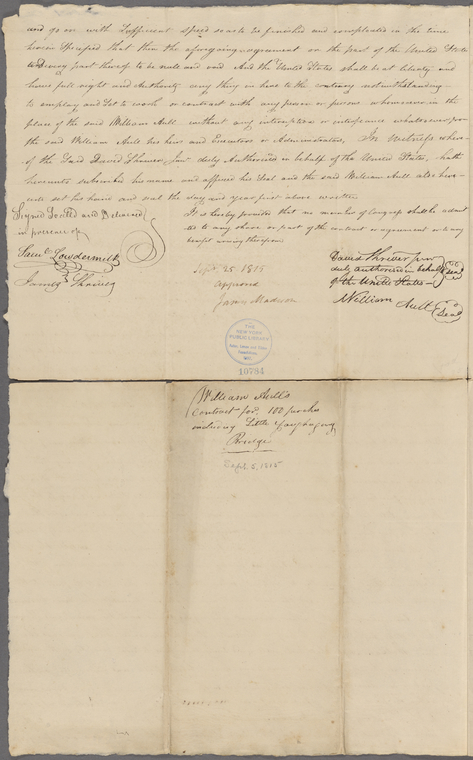 and go on with sufficient speed so as to be finished and compleated in the time
herein specified that then the aforegoing agreement on the part of the United States
and every part thereof to be null and void And the United States shall be at liberty and
have full right and Authority any thing in here to the contrary notwithstanding —
to employ and Set to work or contract with any person or persons whomsoever in the
place of the said William Ault without any interruption or interference whatsoever from
the said William Ault his heirs and Executors or Administrators, In Witness where-
of the Said David Shriver Junr duly Authorised in behalf of the United States, hath
hereunto subscribed his name and affixed his Seal and the said William Ault also here-
unto set his hand and seal the day and year first above written
Signed Sealed and Delivered
in presence of
It is hereby provided that no member of Congress shall be admit
ted to any share or part of the contract or agreement or to any
benefit arising therefrom
Saml C Lowdermilk
James Shriver
Sept. 25 1815
approved
James Madison
David Shriver junr
duly authorised in behalf
of the United States —
Seal
William Ault
Seal
THE
NEW YORK
PUBLIC LIBRARY
10784
William Ault's
Contract for 100 perches
including Little Youghiogeny
Bridge
Sept. 5, 1815